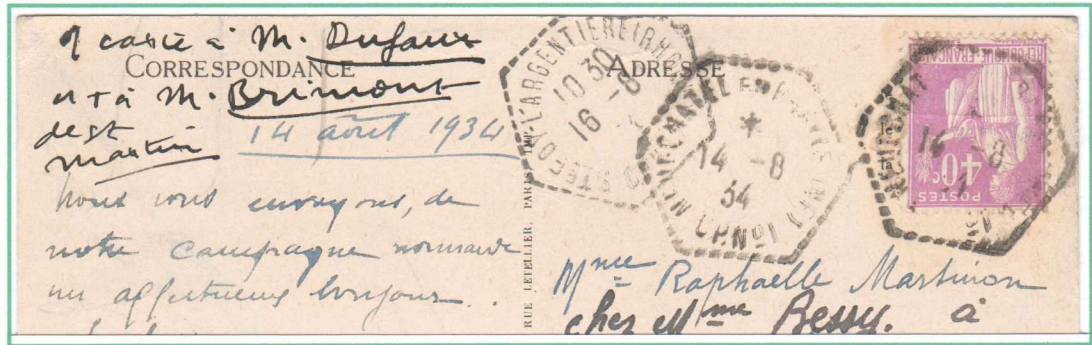 1 carte à M. Dufaur
CORRESPONDANCE
et à M. Brimont
de St
Martin
14 août 1934
Nous vous envoyons, de
notre campagne normande
un affectueux bonjour.
RUE LETELLIER, PARIS
ADRESSE
STE FOY L'ARGENTIERE (RHONE)
10 30
16 -8
NEUFCHATEL EN
14 -8
34
C.P. N°1
14 -8
REPUBLIQUE FRANCAISE
40c
POSTES
Mme Raphaelle Martinon
chez Mme Bessy. à